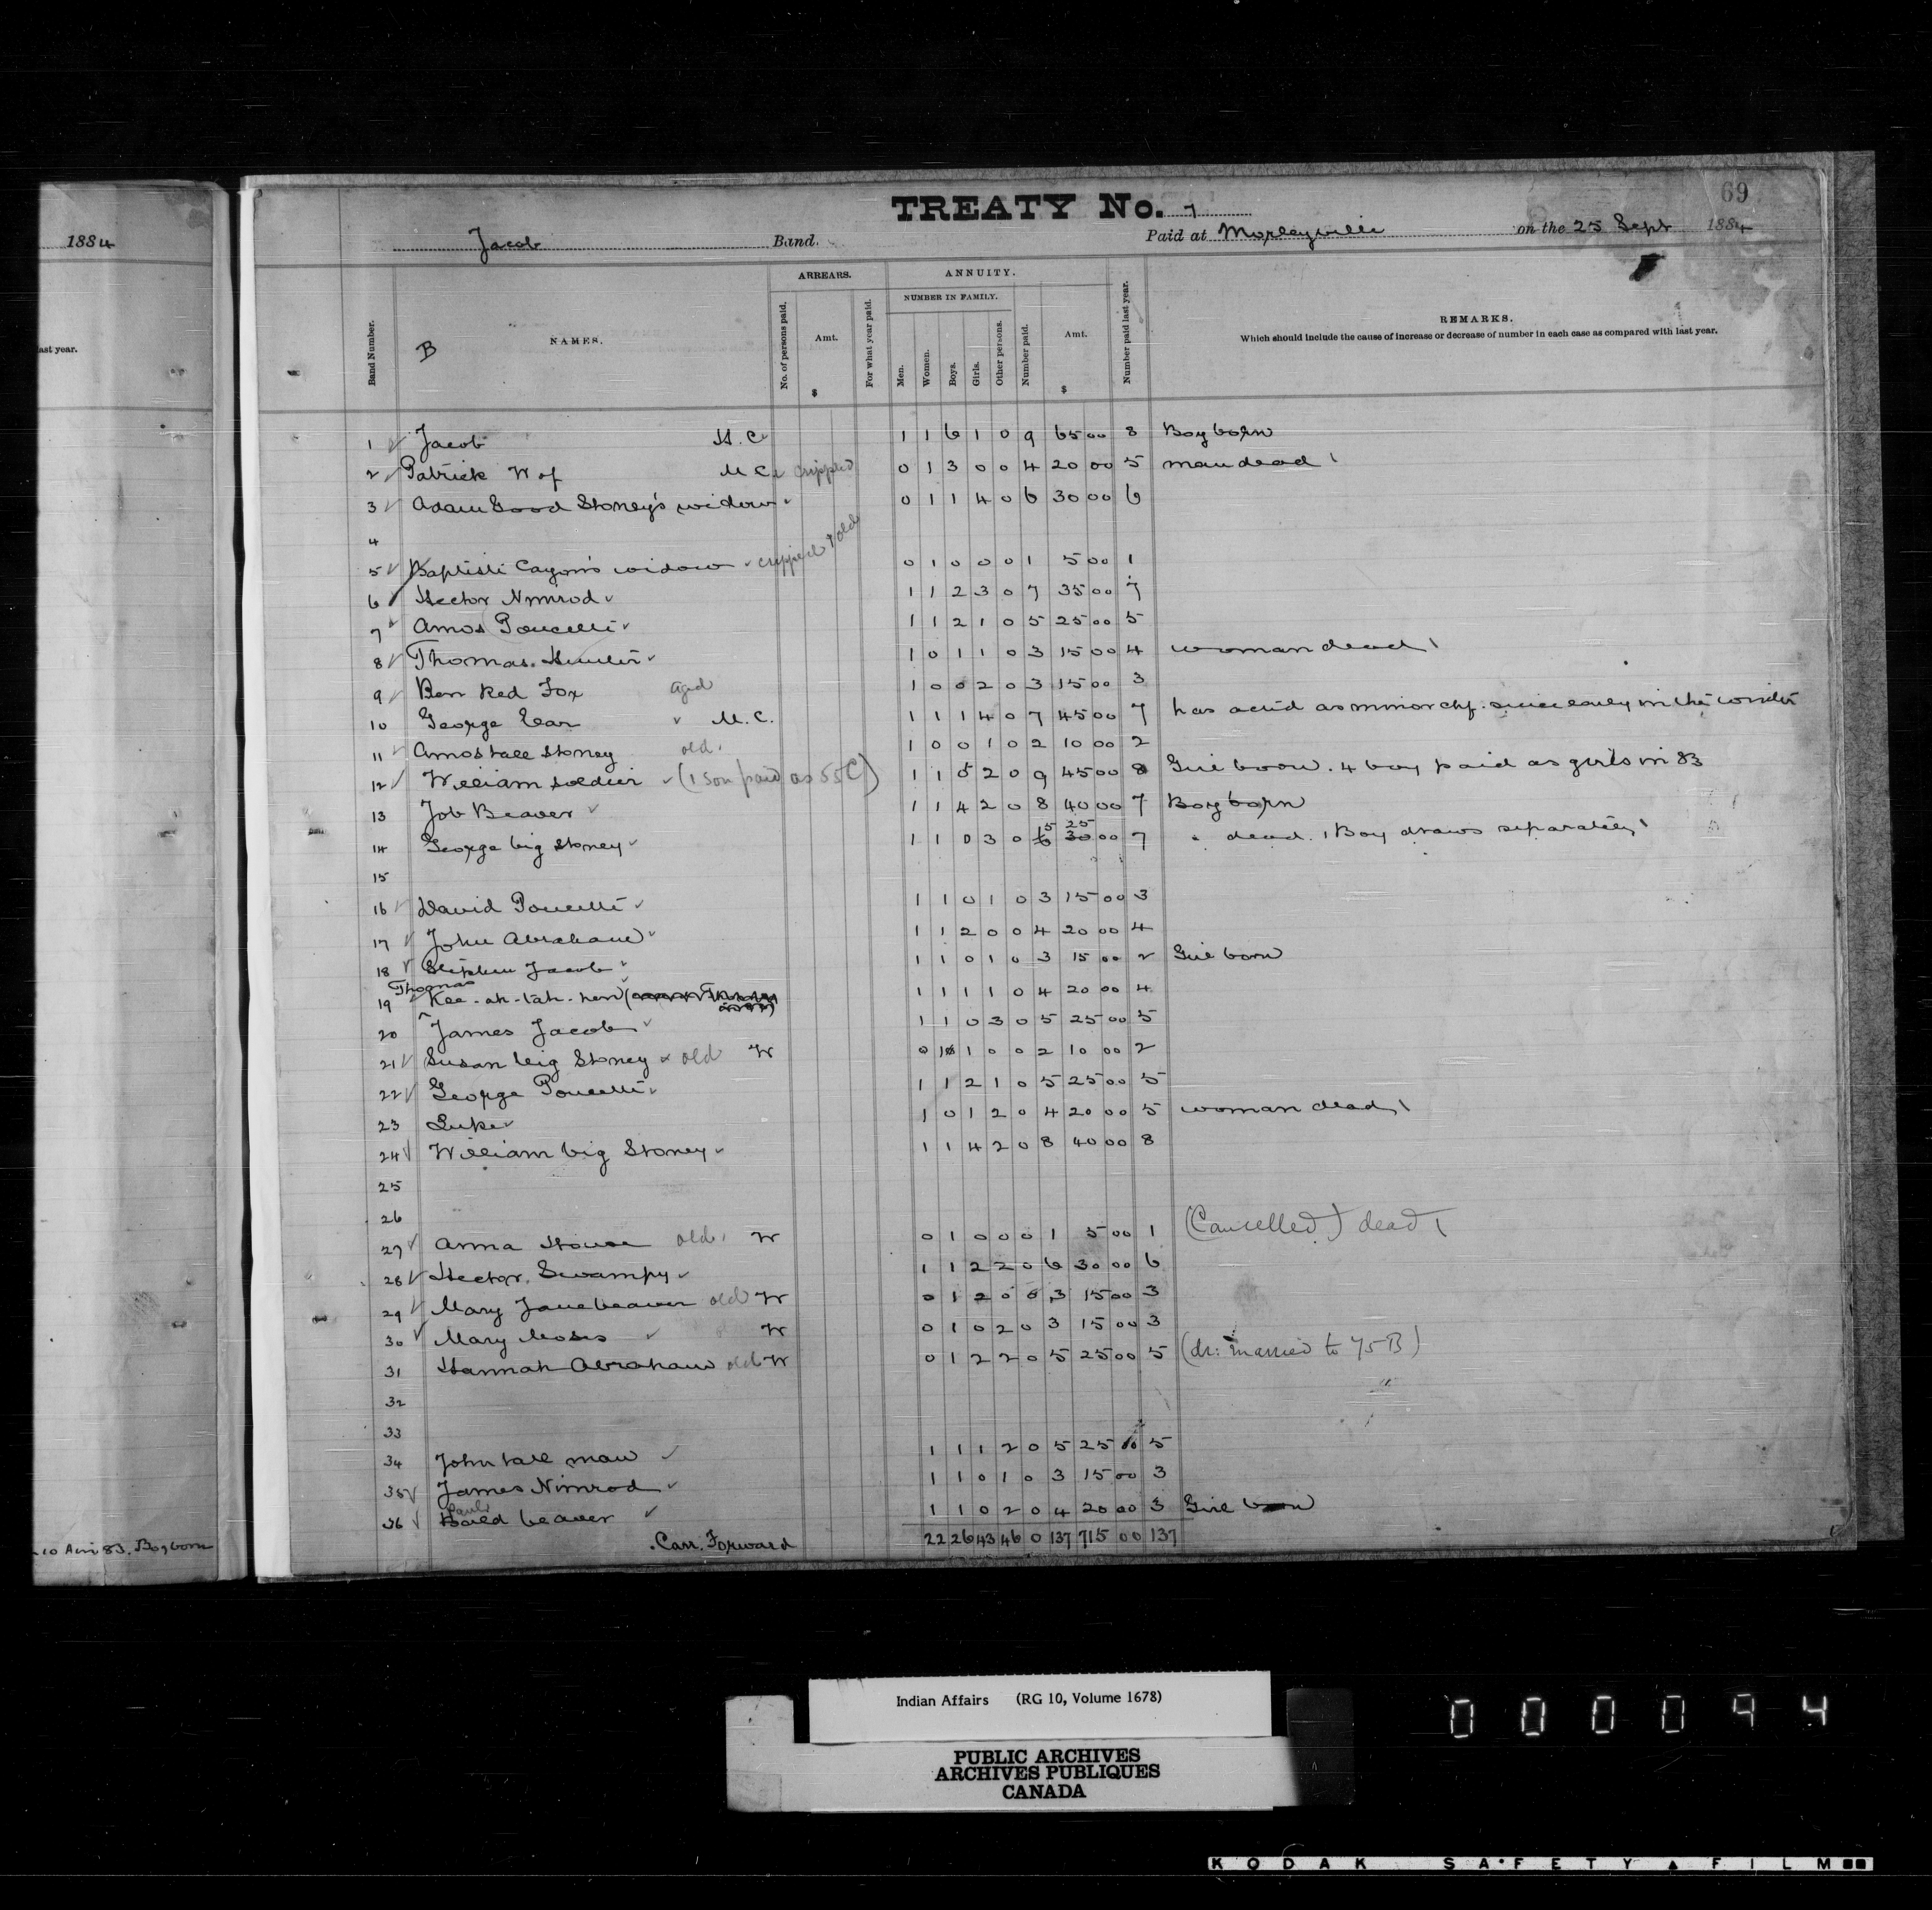 1884
ast year.
10 Ani 83. Boy born
69
TREATY No. 7
Jacob Band. Paid at Morleyville on the 25 Sept 1884
B
Band Number. NAMES. ARREARS. No. of persons paid. Amt. $ For what year paid. ANNUITY. NUMBER IN FAMILY. Men. Women. Boys. Girls. Other persons. Number paid. Amt. $ Number paid last year. REMARKS.
Which should include the cause of increase or decrease of number in each case as compared with last year.
1 Jacob H. C. 1 1 6 1 0 9 65 00 8 Boy born
2 Patrick W of M C crippled 0 1 3 0 0 4 20 00 5 man dead
3 Adam Good Stoney's widow 0 1 1 4 0 6 30 00 6
4
5 Baptiste Cayon's widow crippled & old 0 1 0 0 0 1 5 00 1
6 Hector Nimrod 1 1 2 3 0 7 35 00 7
7 Amos Poucette 1 1 2 1 0 5 25 00 5
8 Thomas Hunter 1 0 1 1 0 3 15 00 4 woman dead
9 Ben Red Fox aged 1 0 0 2 0 3 15 00 3
10 George Ear M. C. 1 1 1 4 0 7 45 00 7 has acted as minor chf. since early in the winter
11 Amos tall Stoney old 1 0 0 1 0 2 10 00 2
12 William Soldier (1 son paid as 55 C) 1 1 5 2 0 9 45 00 8 Girl born. 4 boy paid as girls in 83
13 Job Beaver 1 1 4 2 0 8 40 00 7 Boy born
14 George big Stoney 1 1 0 3 0 6 5 30 25 00 7 " dead. 1 Boy draws separately
15
16 David Poucette 1 1 0 1 0 3 15 00 3
17 John Abraham 1 1 2 0 0 4 20 00 4
18 Stephen Jacob 1 1 0 1 0 3 15 00 2 Girl born
19 Thomas Kee-ah-tah-hen 1 1 1 1 0 4 20 00 4
20 James Jacob 1 1 0 3 0 5 25 00 5
21 Susan big Stoney old W 0 1 1 0 0 2 10 00 2
22 George Poucette 1 1 2 1 0 5 25 00 5
23 Luke 1 0 1 2 0 4 20 00 5 woman dead
24 William big Stoney 1 1 4 2 0 8 40 00 8
25
26
27 Anna House old W 0 1 0 0 0 1 5 00 1 (Cancelled) dead
28 Hector Swampy 1 1 2 2 0 6 30 00 6
29 Mary Jane beaver old W 0 1 2 0 0 3 15 00 3
30 Mary Moses W 0 1 0 2 0 3 15 00 3
31 Hannah Abraham old W 0 1 2 2 0 5 25 00 5 (dr: married to 75 B)
32
33
34 John tall man 1 1 1 2 0 5 25 00 5
35 James Nimrod 1 1 0 1 0 3 15 00 3
36 beaver 1 1 0 2 0 4 20 00 3 Girl born
Carr. Forward 22 26 43 46 0 137 715 00 137
Indian Affairs (RG 10, Volume 1678)
PUBLIC ARCHIVES
ARCHIVES PUBLIQUES
CANADA
000094
KODAK SAFETY FILM